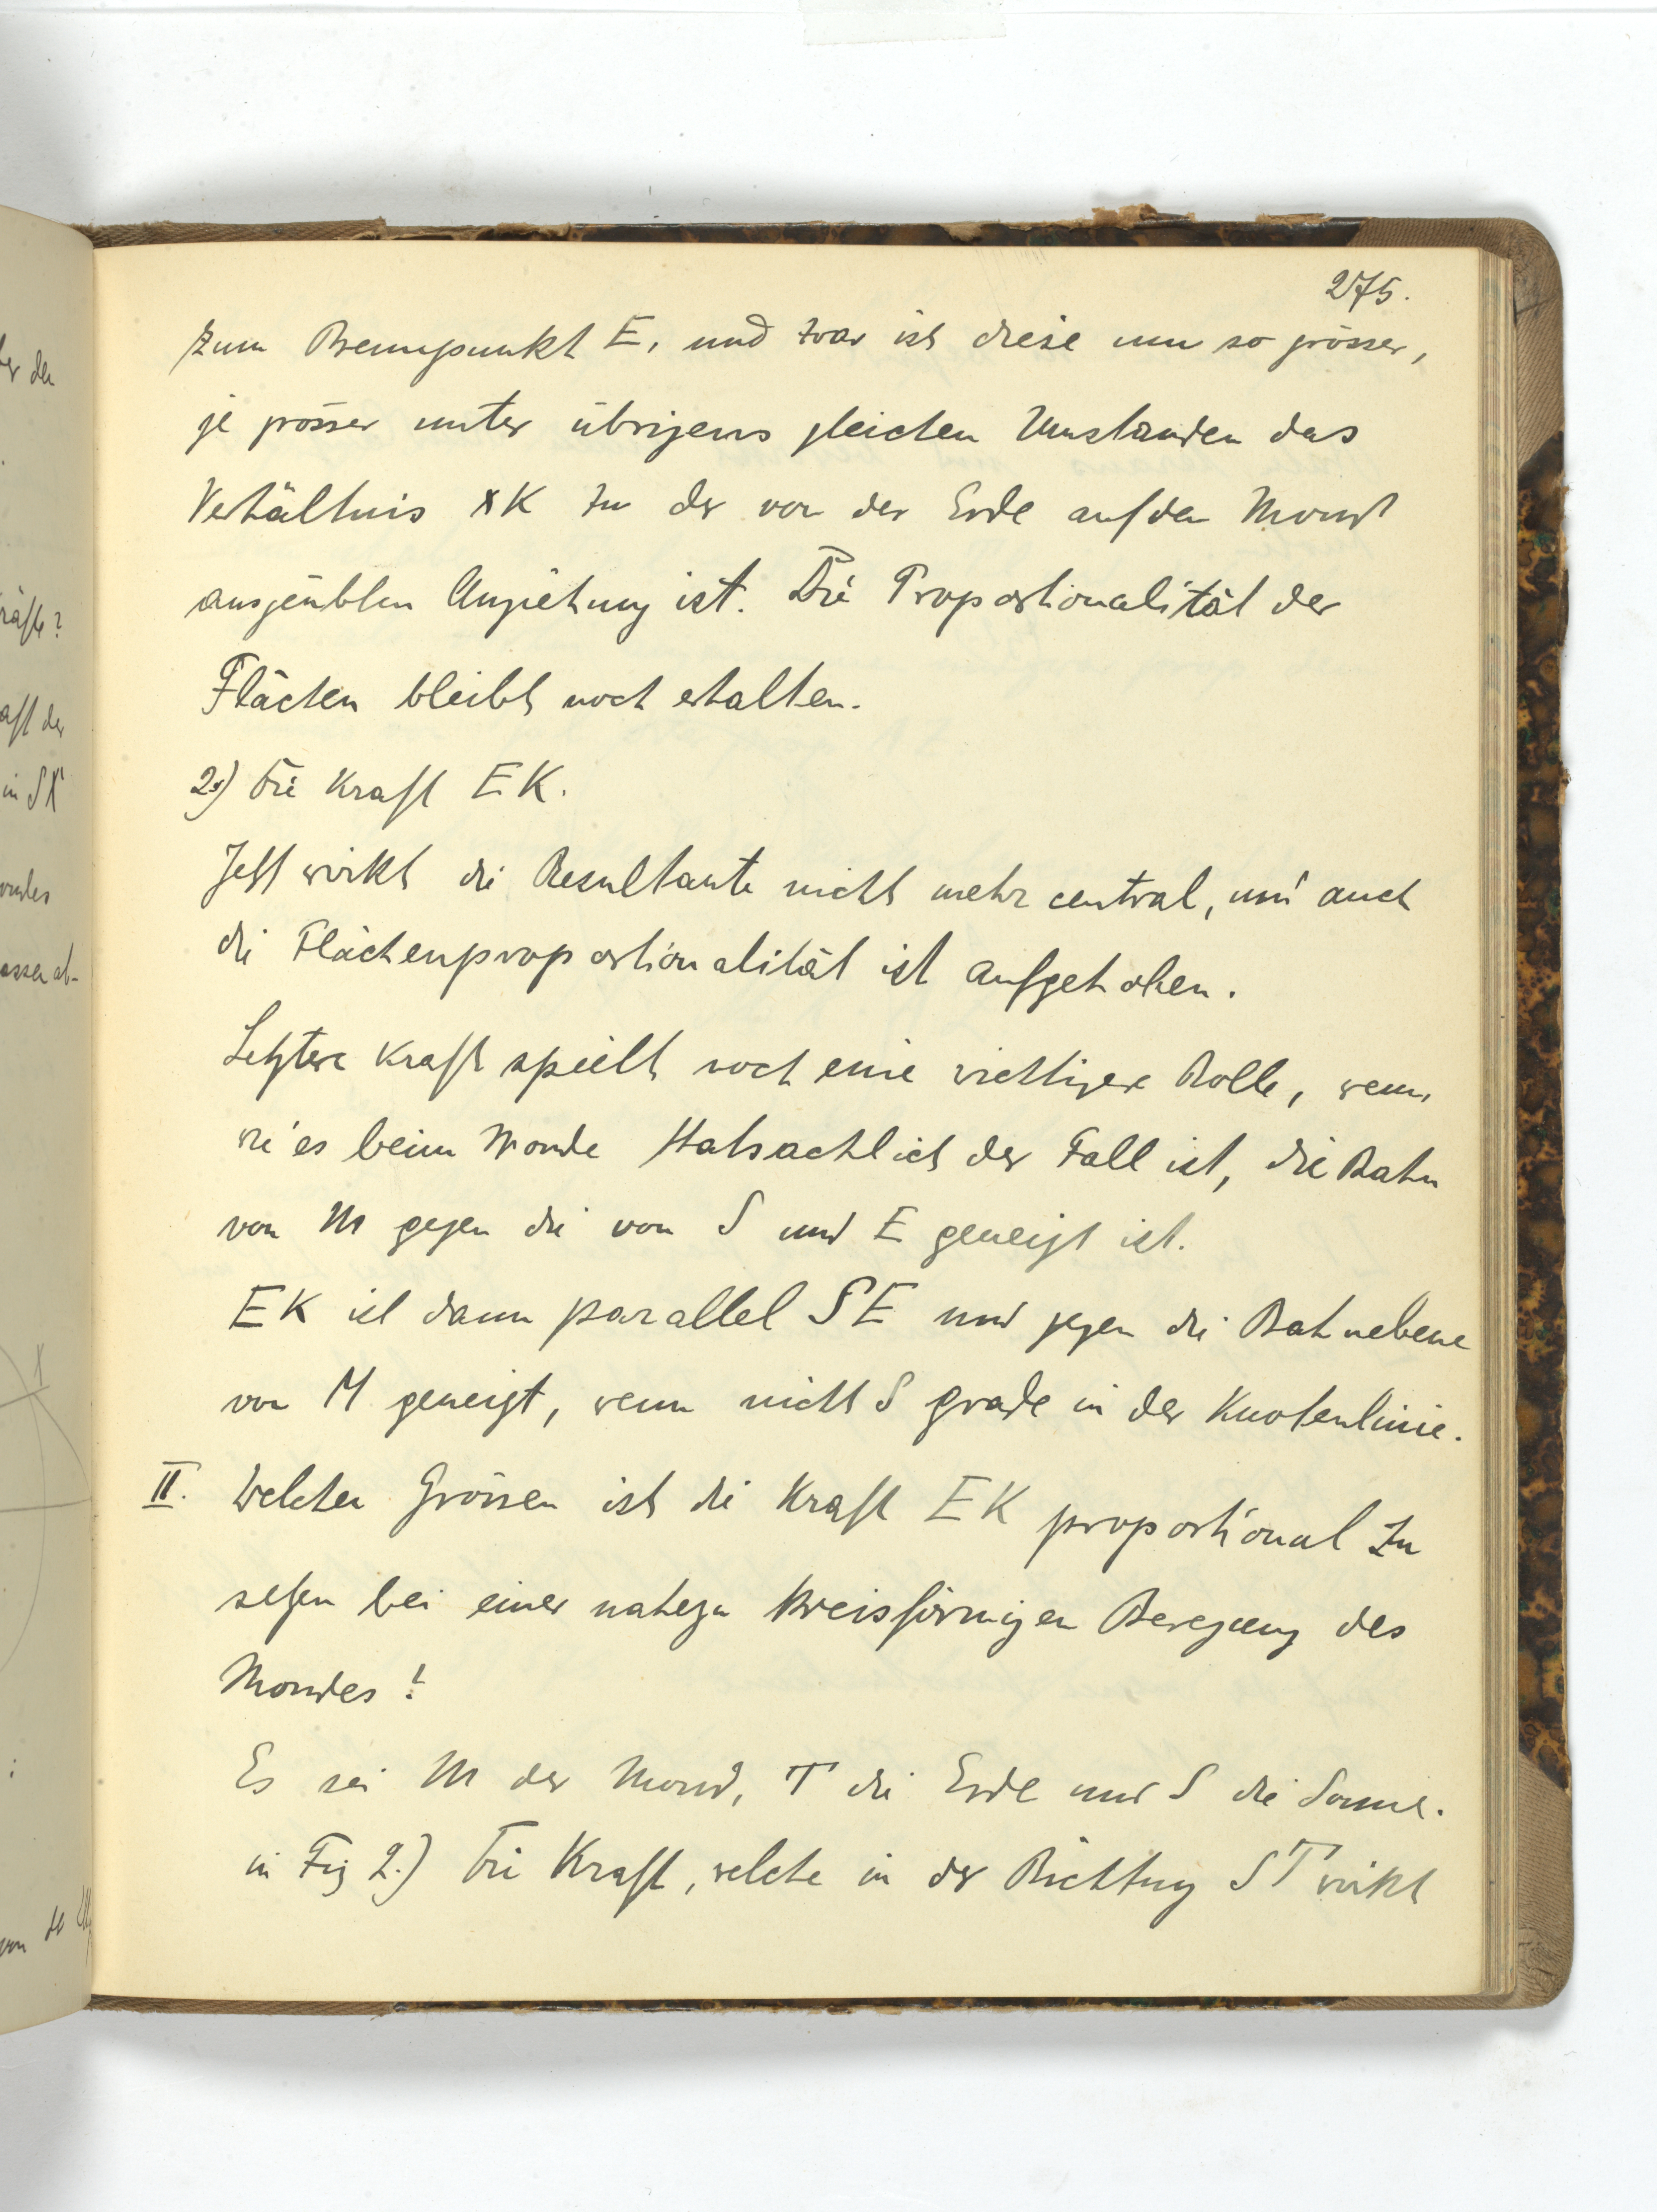 275.
zum Brennpunkt E, und zwar ist diese um so grösser,
je grösser unter übrigens gleichen Umständen das
Verhältnis XK zu der von der Erde auf den Mond
ausgeübten Anziehung ist. Die Proportionalität der
Flächen bleibt noch erhalten.
2.) Die Kraft EK.
Jetzt wirkt die Resultante nicht mehr central, und auch
die Flächenproportionalität ist aufgehoben.
Letztere Kraft spielt noch eine wichtigere Rolle, wenn,
wie es beim Monde thatsächlich der Fall ist, die Bahn
von M gegen die von S und E geneigt ist.
EK ist dann parallel SE und gegen die Bahnebene
von M geneigt, wenn nicht S grade in der Knotenlinie.
II. Welchen Grössen ist die Kraft EK proportional zu
setzen bei einer nahezu kreisförmigen Bewegung des
Mondes?
Es sei M der Mond, T die Erde und S die Sonne.
in Fig 2.) Die Kraft, welche in der Richtung ST wirkt